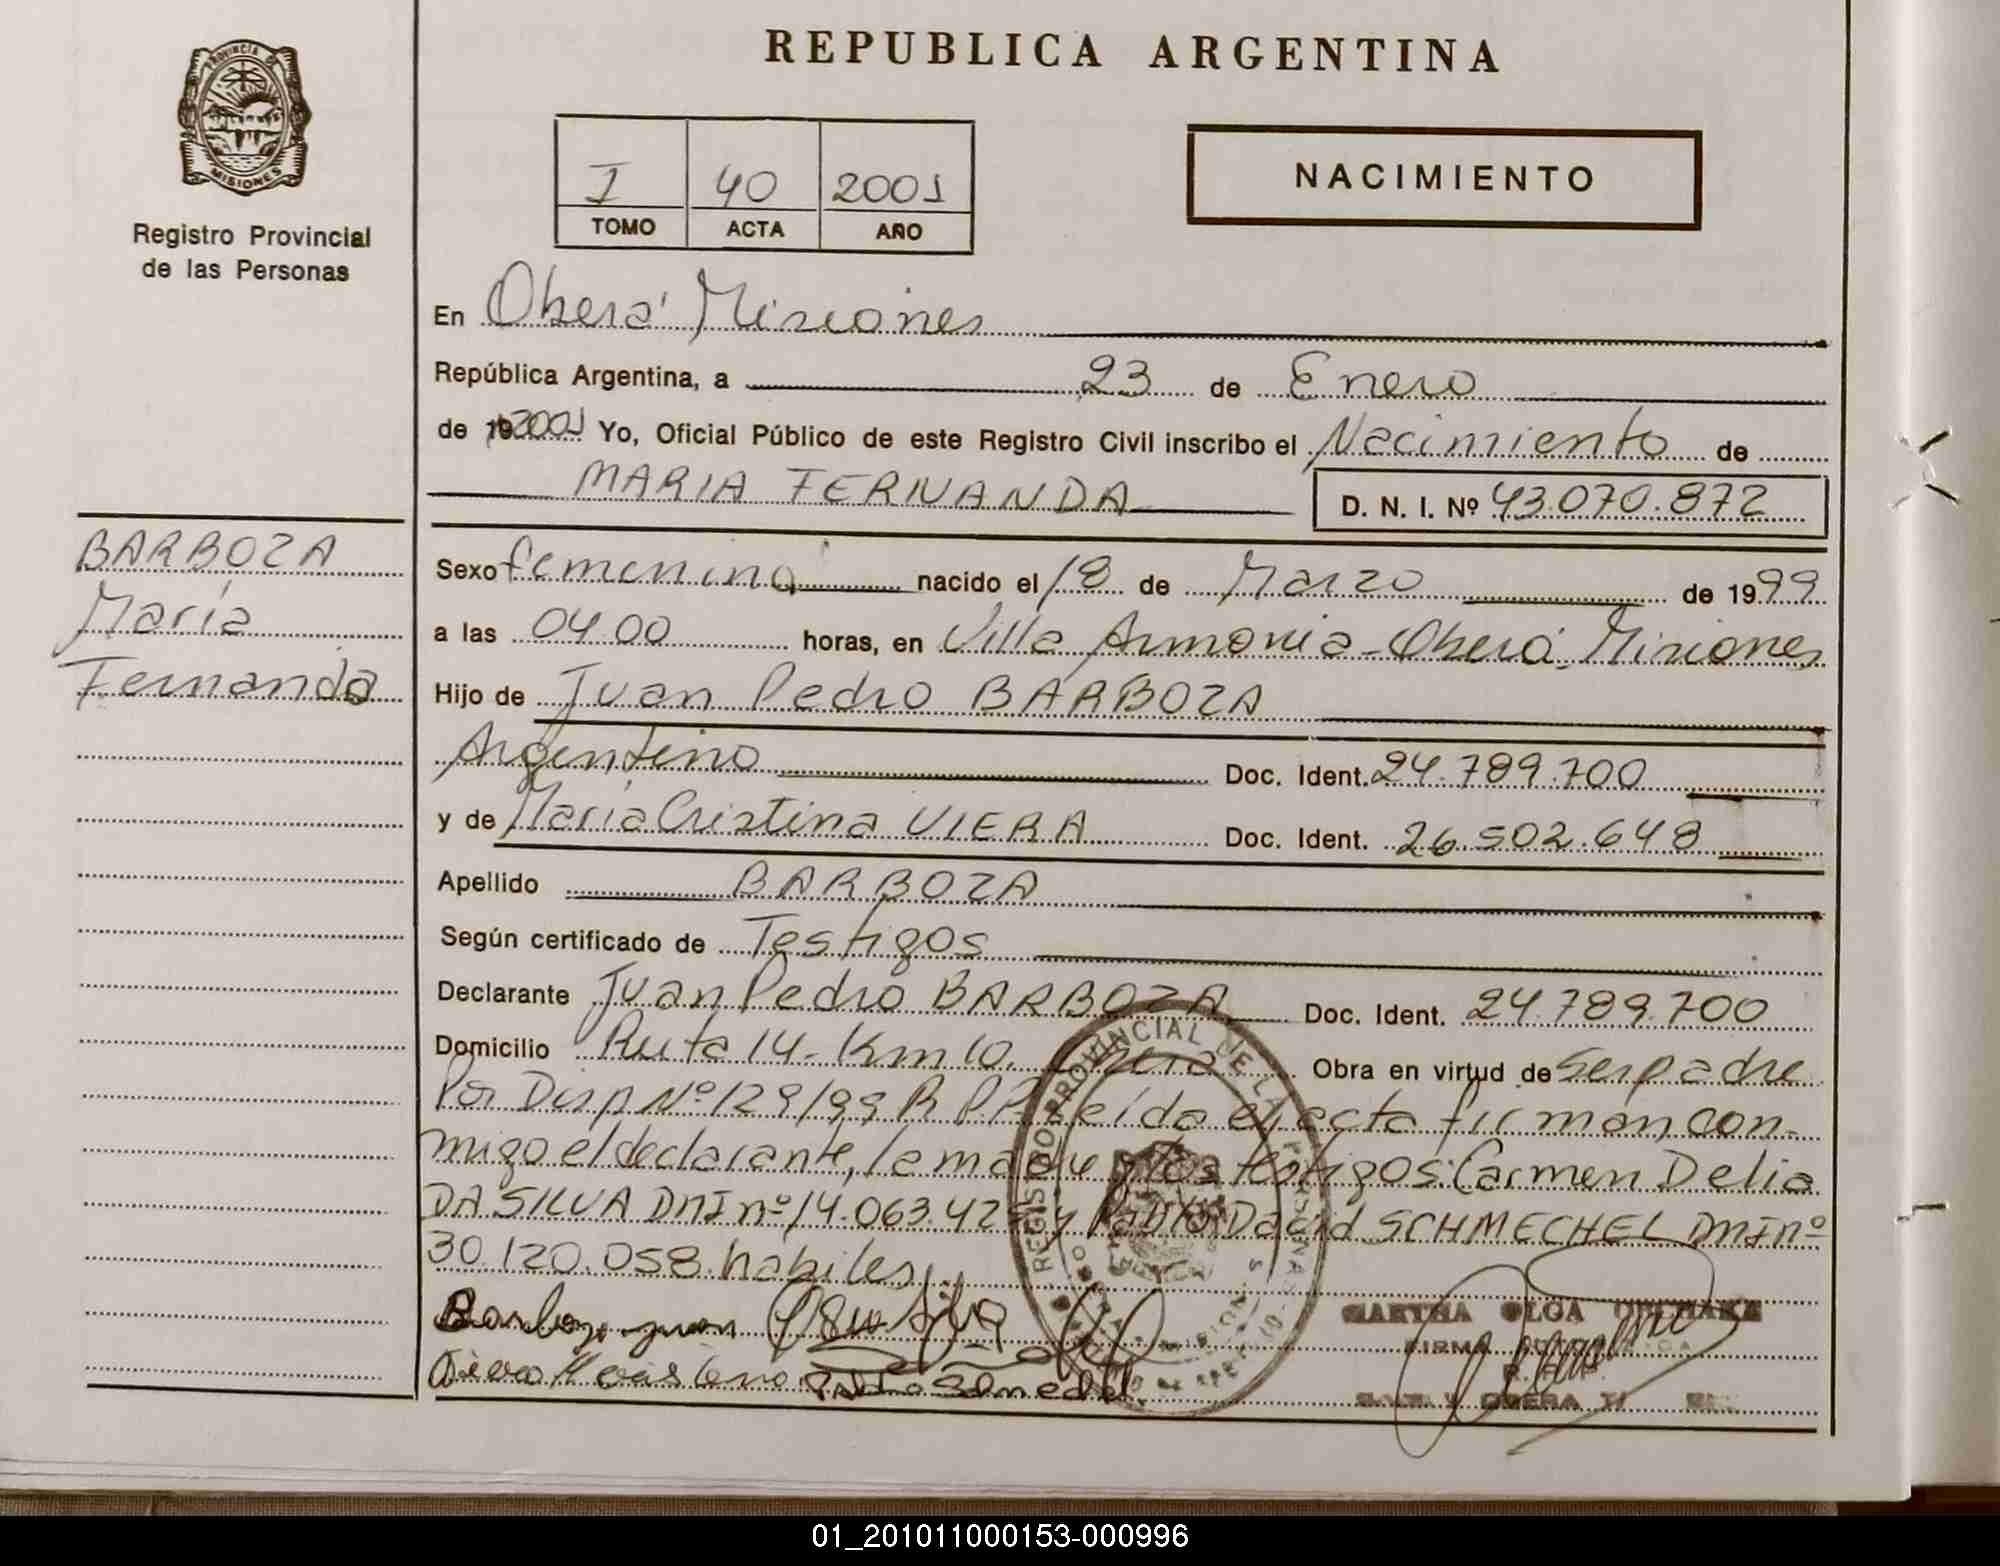 REPUBLICA ARGENTINA
PROVINCIA DE
MISIONES
Registro Provincial
de las Personas
I 40 2001
TOMO ACTA AÑO
NACIMIENTO
En Oberá Misiones
República Argentina, a 23 de Enero
de 192001 Yo, Oficial Público de este Registro Civil inscribo el Nacimiento de
MARIA FERNANDA D. N. I. Nº 43.070.872
BARBOZA
María
Fernanda
Sexo femenino nacido el 18 de Marzo de 1999
a las 04 00 horas, en Villa Armonia - Oberá Misiones
Hijo de Juan Pedro BARBOZA
Argentino Doc. Ident. 24.789.700
y de María Cristina VIERA Doc. Ident. 26.502.648
Apellido BARBOZA
Según certificado de Testigos
Declarante Juan Pedro BARBOZA Doc. Ident. 24.789.700
Domicilio Ruta 14 - Km 10. Oberá Obra en virtud de ser padre
Por Disp Nº 129/99 R.P.P. Leída el acta firman con-
migo el declarante, la madre y los testigos: Carmen Delia
DA SILVA DNI nº 14.063.42 y Pablo David SCHMECHEL DNI nº
30.120.058 habiles
REGISTRO PROVINCIAL DE LAS PERSONAS
MARTHA OLGA
FIRMA
R. P. P.
OBERA
01_201011000153-000996